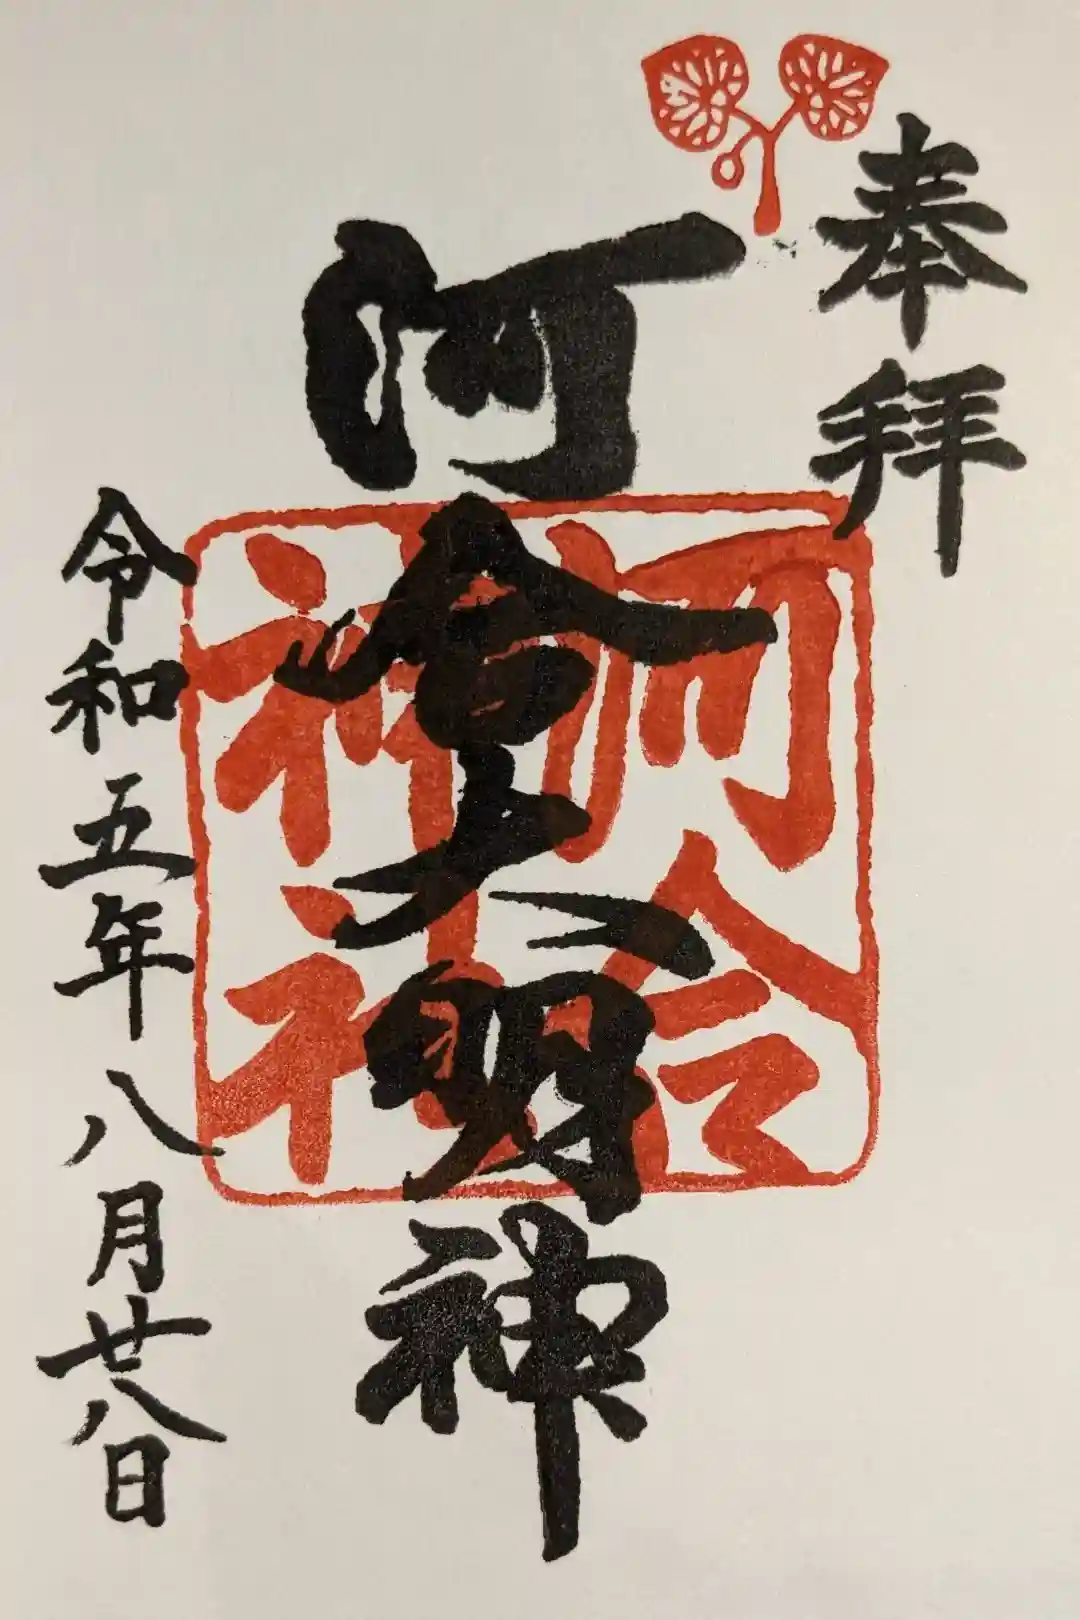 奉拝
河合大明神
河合神社
令和五年八月廿八日